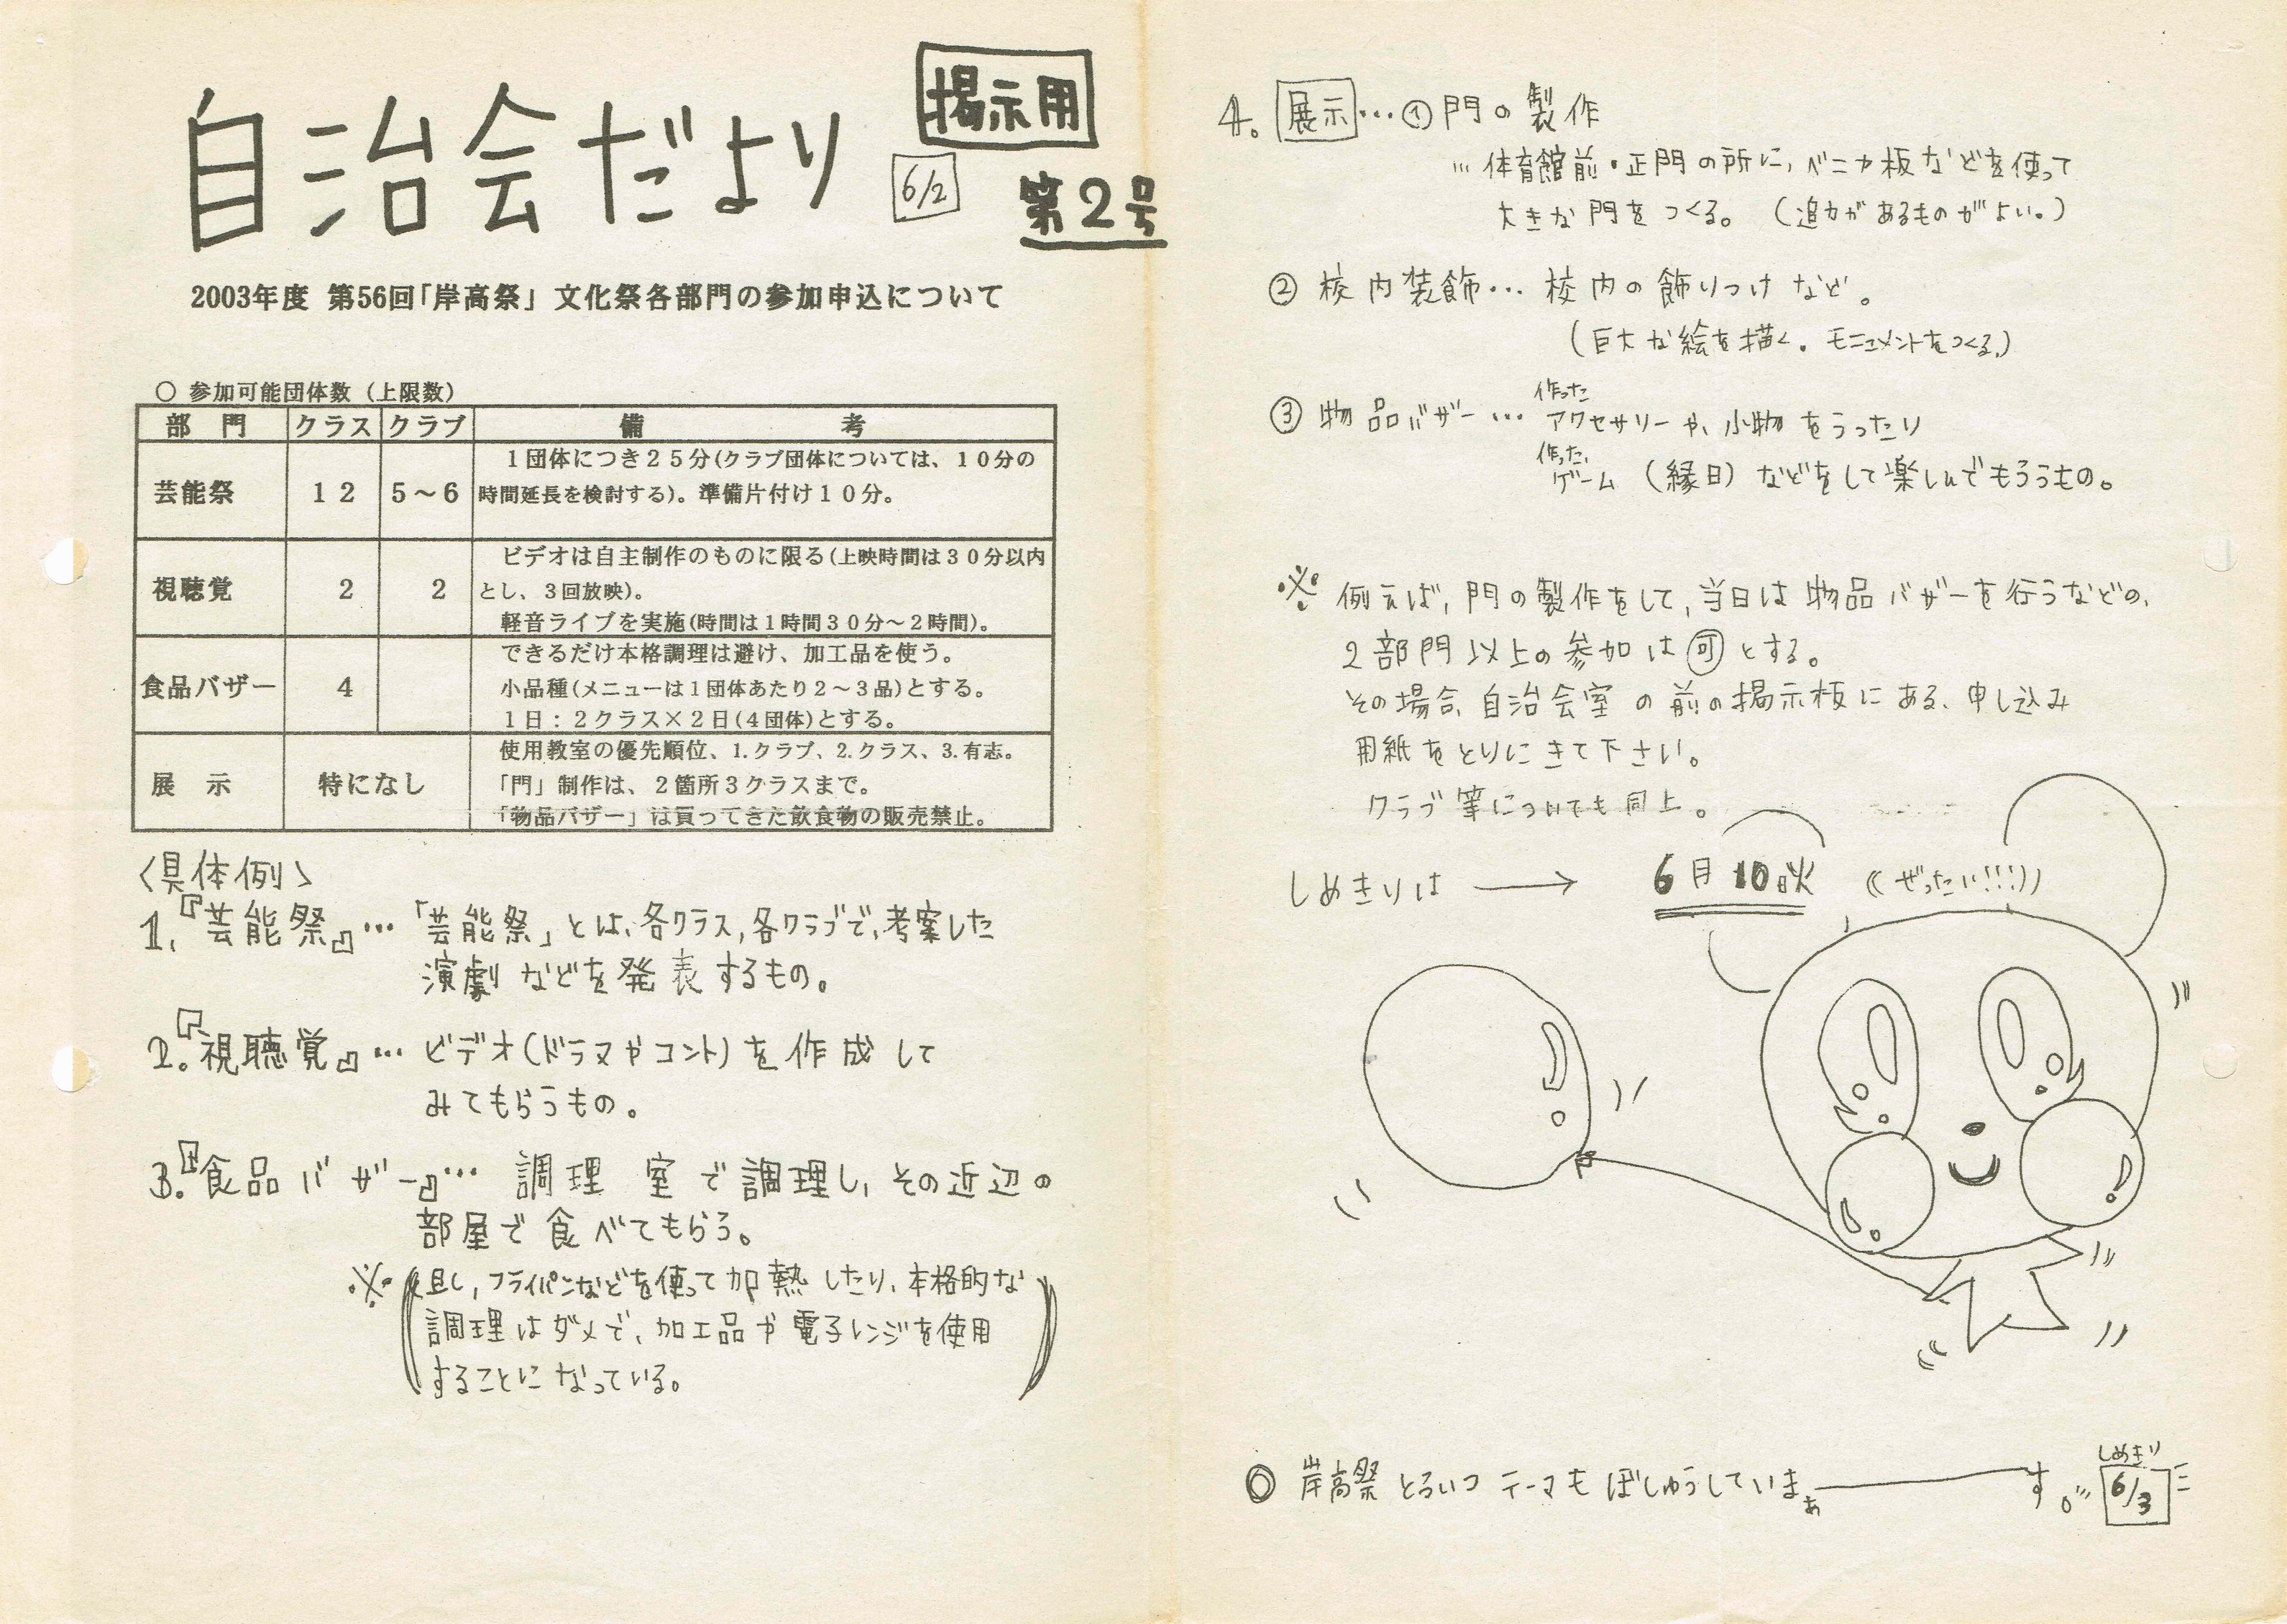 自治会だより
掲示用
6/2
第2号
2003年度 第56回「岸高祭」 文化祭各部門の参加申込について
○ 参加可能団体数（上限数）
部 門 クラス クラブ 備 考
芸能祭 12 5～6
1団体につき25分(クラブ団体については、10分の
時間延長を検討する)。準備片付け10分。
視聴覚 2 2
ビデオは自主制作のものに限る(上映時間は30分以内
とし、3回放映)。
軽音ライブを実施(時間は1時間30分～2時間)。
食品バザー 4
できるだけ本格調理は避け、加工品を使う。
小品種(メニューは1団体あたり2～3品)とする。
1日：2クラス×2日(4団体)とする。
展 示 特になし
使用教室の優先順位、1.クラブ、2.クラス、3.有志。
「門」制作は、2箇所3クラスまで。
「物品バザー」は買ってきた飲食物の販売禁止。
〈具体例〉
1.『芸能祭』…「芸能祭」とは、各クラス,各クラブで,考案した
演劇などを発表するもの。
2.『視聴覚』… ビデオ(ドラマやコント)を作成して
みてもらうもの。
3.『食品バザー』… 調理室で調理し,その近辺の
部屋で食べてもらう。
※(但し,フライパンなどを使って加熱したり、本格的な
調理はダメで、加工品や電子レンジを使用
することになっている。)
4. 展示…①門の製作
…体育館前・正門の所に,ベニヤ板などを使って
大きな門をつくる。(迫力があるものがよい。)
② 校内装飾… 校内の飾りつけなど。
(巨大な絵を描く。モニュメントをつくる。)
③ 物品バザー… 作ったアクセサリーや、小物をうったり
作った,ゲーム(縁日)などをして楽しんでもらうもの。
※ 例えば,門の製作をして,当日は物品バザーを行うなどの、
2部門以上の参加は可とする。
その場合、自治会室の前の掲示板にある、申し込み
用紙をとりにきて下さい。
クラブ等についても同上。
しめきりは → 6月10日火 ((ぜったい!!!))
◎ 岸高祭とろいつテーマもぼしゅうしていまぁ――す。
しめきり
6/3